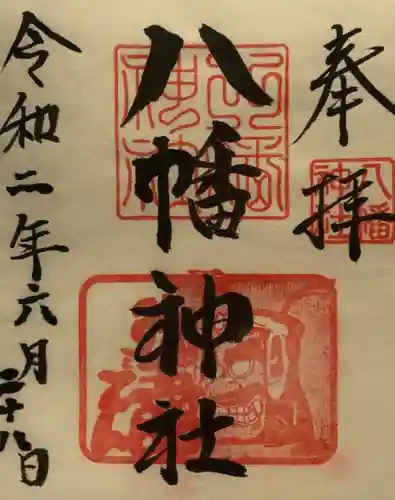 奉拝
八幡神社
令和二年六月二十八日